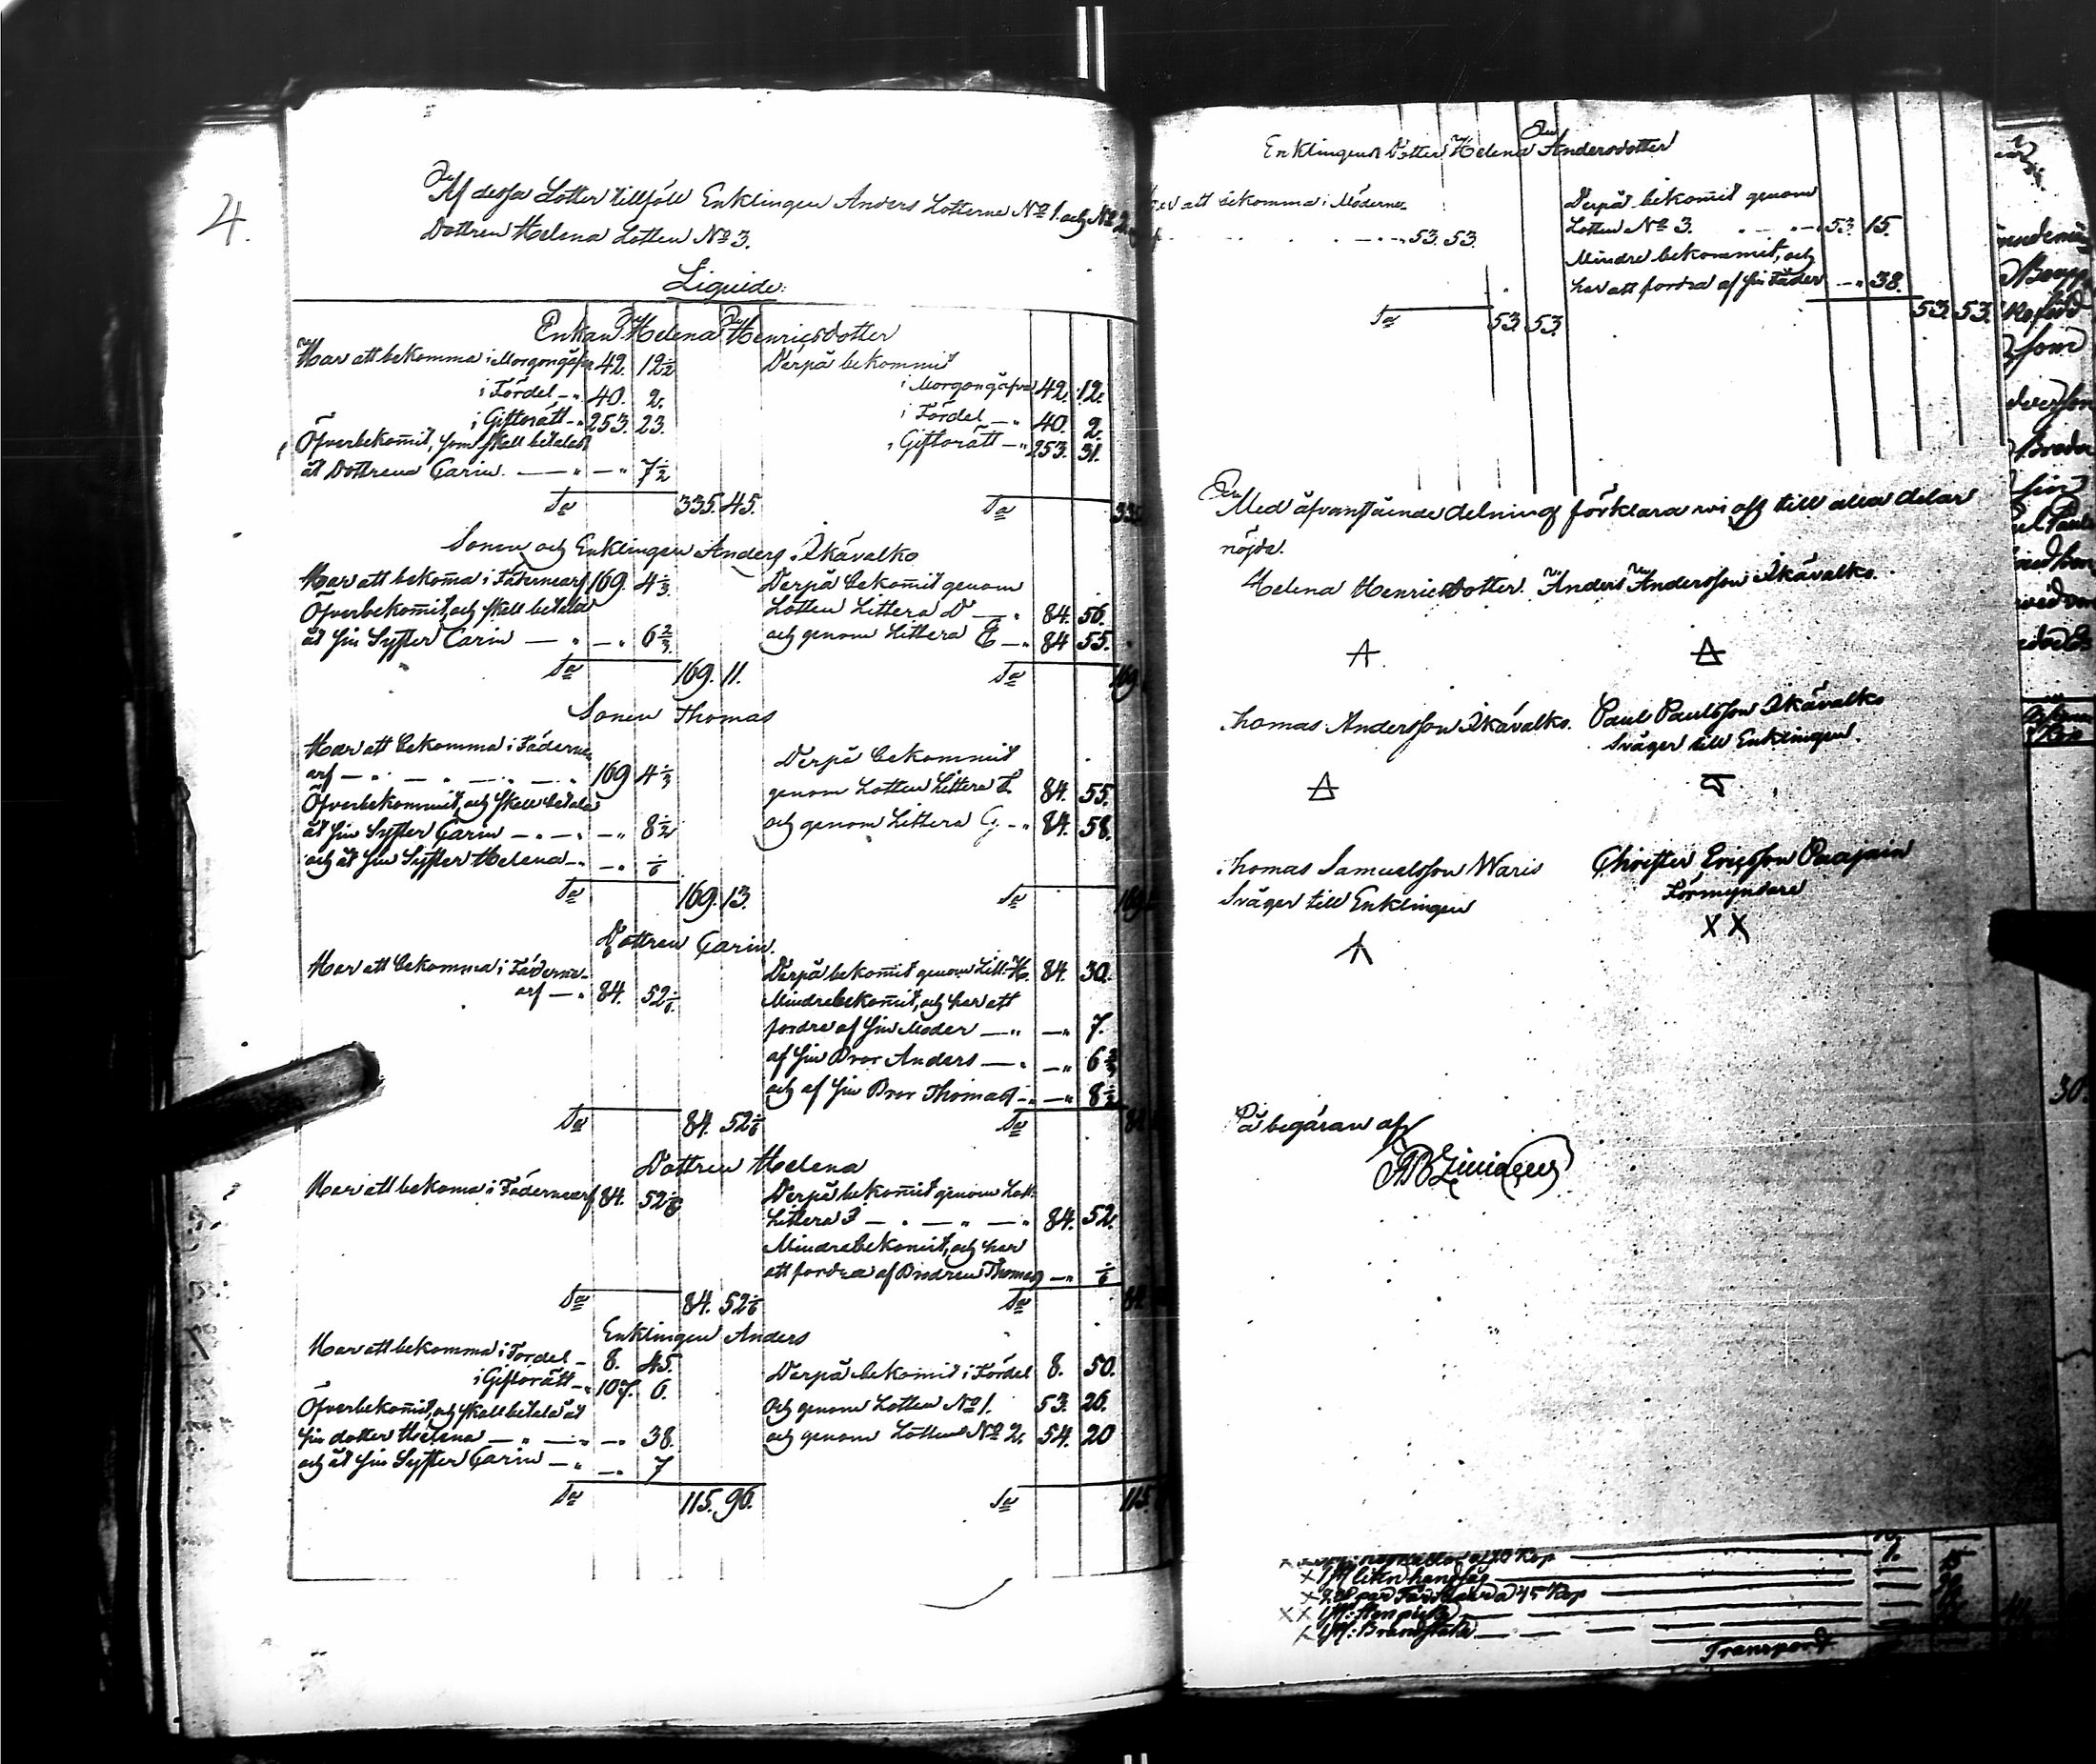 4.
Af dessa Lotter tillföll Enklingen Anders Lotterne No 1. och No 2.
Dottren Helena Lotten No 3.
Liquide:
Enkan Helena Henricsdotter
Har att bekomma i Morgongåfva 42. 12½ Derpå bekommit
i Morgongåfva 42. 12.
i Fördel 40. 2. i Fördel 40. 2.
i Giftorätt 253. 23. i Giftorätt 253. 31.
Öfverbekom̄it, som skall betalas
åt Dottren Carin 7½
Sa 335. 45. Sa
Sonen och Enklingen Anders Ikävalko
Har att bekom̄a i Fädernearf 169. 4⅓ Derpå bekom̄it genom
Öfverbekom̄it, och skall betala Lotten Littera D 84. 56.
åt sin Syster Carin 6⅔ och genom Littera E 84 55.
Sa 169. 11. Sa 169
Sonen Thomas
Har att bekomma i Fäderne
arf 169 4⅓ Derpå bekommit
genom Lotten Littera F 84. 55.
Öfverbekommit, och skall betala
åt sin Syster Carin 8½ och genom Littera G 84. 58.
och åt sin Syster Helena ⅙
Sa 169. 13. Sa 169
Dottren Carin.
Har att bekomma i Fäderne- Derpå bekom̄it genom Litt. H. 84. 30.
arf 84. 52⅙ Mindrebekom̄it, och har att
fordra af sin Moder 7.
af sin Bror Anders 6⅔
och af sin Bror Thomas 8½
Sa 84. 52⅙ Sa 84
Dottren Helena
Har att bekoma i Fädernearf 84. 52⅙ Derpå bekom̄it genom Lott
Littera I 84. 52.
Mindrebekomit, och har
att fordra af Brodren Thomas ⅙
Sa 84. 52⅙ Sa 84
Enklingen Anders
Har att bekomma i Fördel 8. 45. Derpå bekomit i Fördel 8. 50.
i Giftorätt 107. 6. och genom Lotten No 1. 53. 26.
Öfverbekom̄it, och skall betala åt
sin dotter Helena 38. och genom Lotten No 2. 54. 20
och åt sin Syster Carin 7
Sa 115. 96. Sa 115
Enklingens Dotter Helena Andersdotter
att bekomma i Möderne- Derpå bekom̄it genom
53. 53. Lotten No 3. 53. 15.
Mindre bekommit, och
har att fordra af sin Fader 38.
Sa 53. 53. 53. 53.
Med åfvanstående delning förklara wi oss till alla delar
nöjda.
Helena Henricsdotter. Anders Andersson Ikävalko.
Thomas Andersson Ikävalko. Paul Paulsson Ikävalko
Svåger till Enklingen.
Thomas Samuelsson Waris Christer Ericsson Paajain
Svåger till Enklingen Förmyndare
X X
På begäran af
Transport
30.